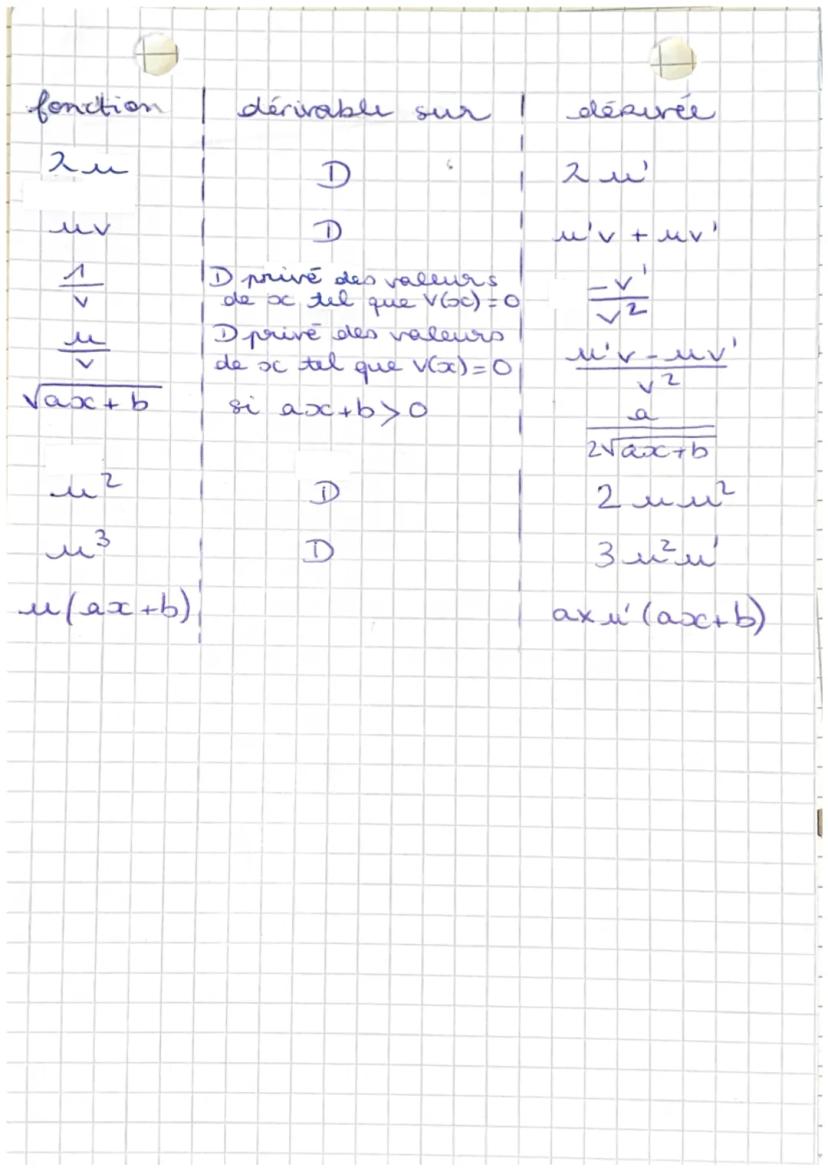 fonction | dérivable sur | dérivée
λu D λu'
uv D u'v + uv'
1/v D privé des valeurs de x tel que v(x)=0 -v'/v²
u/v D privé des valeurs de x tel que v(x)=0 u'v - uv'/v²
√ax+b si ax+b>0 a/2√ax+b
u² D 2uu²
u³ D 3u²u'
u(ax+b) a×u'(ax+b)